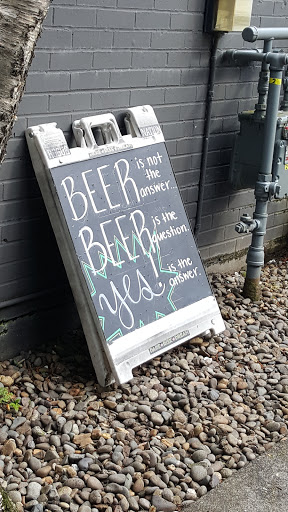 BEER is not
the
answer...
BEER is the
question.
yes. is the
answer.